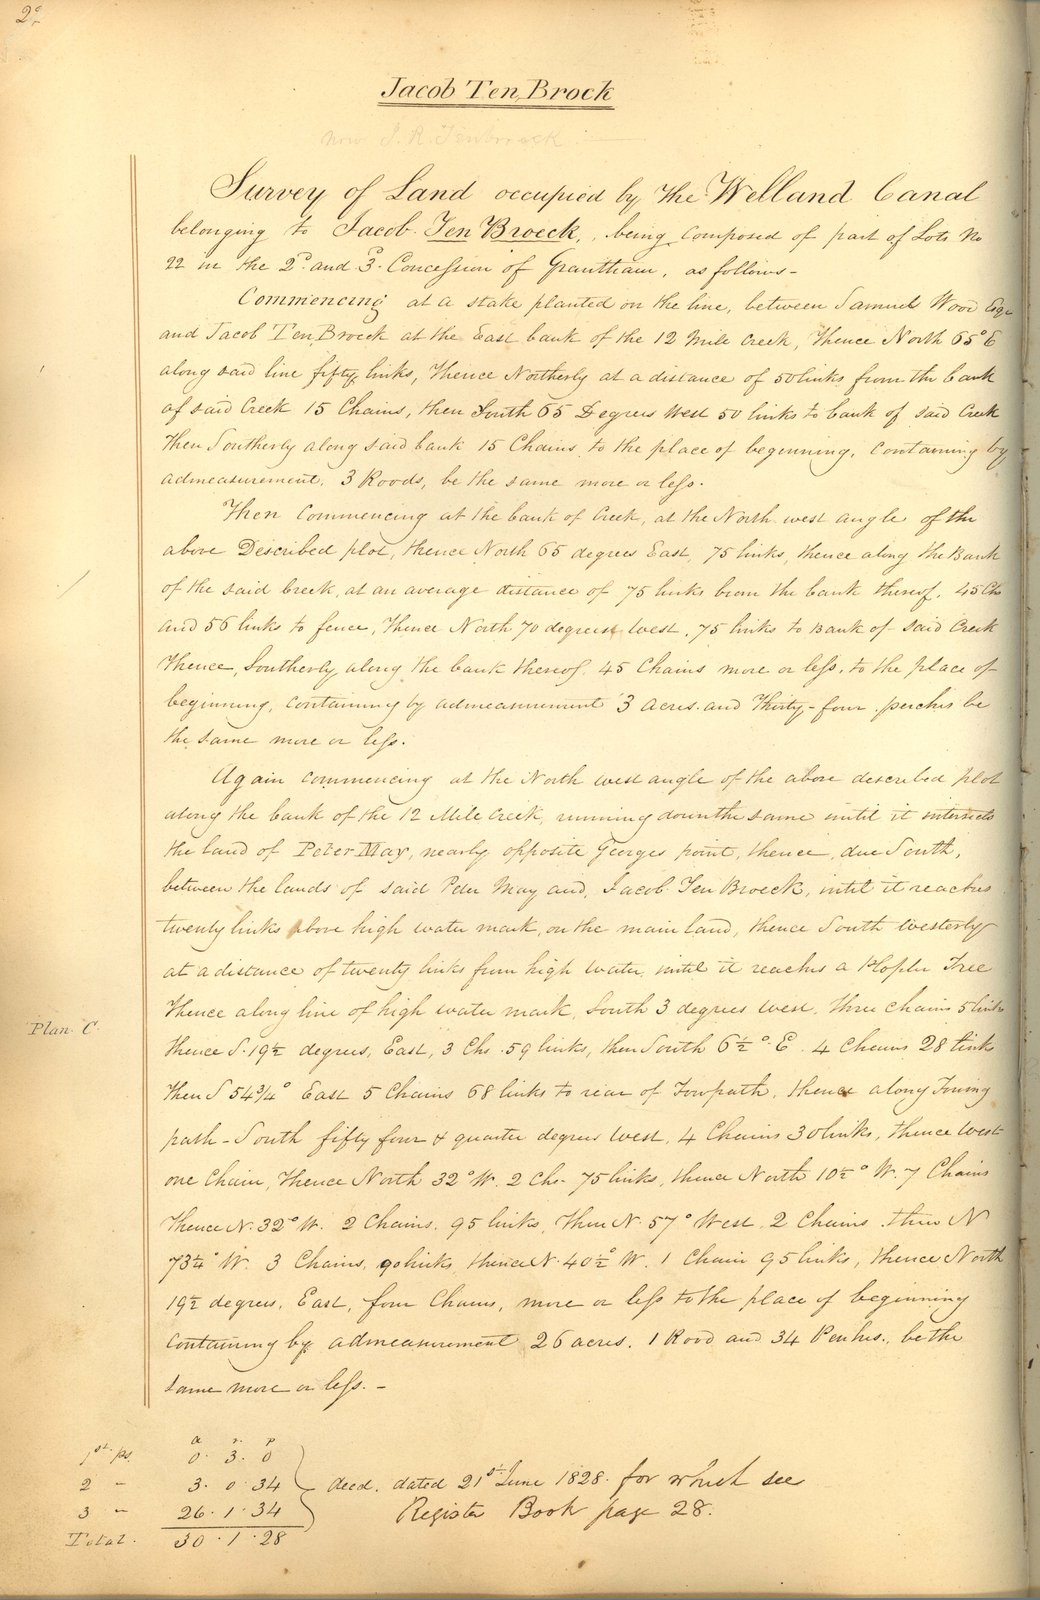 2.
Jacob Ten Brock
now J. R. Tenbroeck
Survey of Land occupied by the Welland Canal
belonging to Jacob Ten Broeck, being composed of part of Lots No
22 in the 2d. and 3d. Concession of Grantham, as follows-
Commencing at a stake planted on the line, between Samuel Wood Esqr
and Jacob Ten Broeck at the East bank of the 12 Mile Creek, thence North 65° E
along said line fifty links, Thence Northerly at a distance of 50 links from the bank
of said Creek 15 Chains, then South 65 Degrees West 50 links to bank of said Creek
then Southerly along said bank 15 Chains to the place of beginning, Containing by
admeasurement, 3 Roods, be the same more or less.
Then Commencing at the bank of Creek, at the North west angle of the
above Described plot, thence North 65 degrees East, 75 links, thence along the Bank
of the said Creek, at an average distance of 75 links from the bank thereof, 45 Chs
and 56 links to fence, thence North 70 degrees West, 75 links to Bank of said Creek
thence, Southerly along the bank thereof 45 Chains more or less, to the place of
beginning, containing by admeasurement 3 acres and Thirty-four perches be
the same more or less.
Again commencing at the North west angle of the above described plot
along the bank of the 12 Mile Creek, running down the same until it intersects
the land of Peter May, nearly opposite Georges point, thence, due South,
between the lands of said Peter May and Jacob Ten Broeck, until it reaches
twenty links above high water mark, on the main land, thence South Westerly
at a distance of twenty links from high water until it reaches a Tree
thence along line of high water mark, South 3 degrees West, three chains 5 links
thence S. 19½ degrees, East, 3 Chs. 59 links, then South 6½° E. 4 Chains 28 links
then S 54¾° East 5 Chains 68 links to rear of Towpath, thence along Towing
path - South fifty four & quarter degrees West, 4 Chains 30 links, thence West
one Chain, thence North 32° W. 2 Chs- 75 links, thence North 10½° W. 7 Chains
thence N. 32° W. 2 Chains, 95 links, then N. 57° West, 2 Chains, then N
73¼° W. 3 Chains, 90 links, thence N. 40½° W. 1 Chain 95 links, thence North
19½ degrees, East, four Chains, more or less to the place of beginning
Containing by admeasurement 26 acres, 1 Rood and 34 Perches, be the
same more or less.-
Plan. C.
a r. p
1st. ps. 0. 3. 0
2 " 3. 0. 34
3 " 26. 1. 34
Total. 30. 1. 28
deed, dated 21st June 1828. for which see
Register Book page 28.